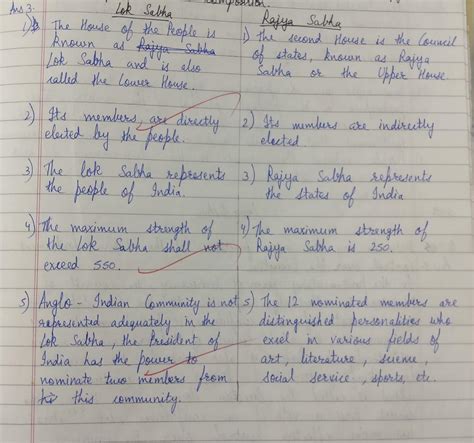 Ans 3-
Lok Sabha
Rajya Sabha
1) The House of the People is
known as Rajya Sabha
Lok Sabha and is also
called the Lower House.
1) The second House is the Council
of states, known as Rajya
Sabha or the Upper House
2) Its members, are directly
elected by the people.
2) Its members are indirectly
elected
3) The Lok Sabha represents
the people of India.
3) Rajya Sabha represents
the states of India
4) The maximum strength of
the Lok Sabha shall not
exceed 550.
4) The maximum strength of
Rajya Sabha is 250.
5) Anglo-Indian Community is not
represented adequately in the
Lok Sabha, the President of
India has the power to
nominate two members from
this community.
5) The 12 nominated members are
distinguished personalities who
excel in various fields of
art, literature, science,
social service, sports, etc.